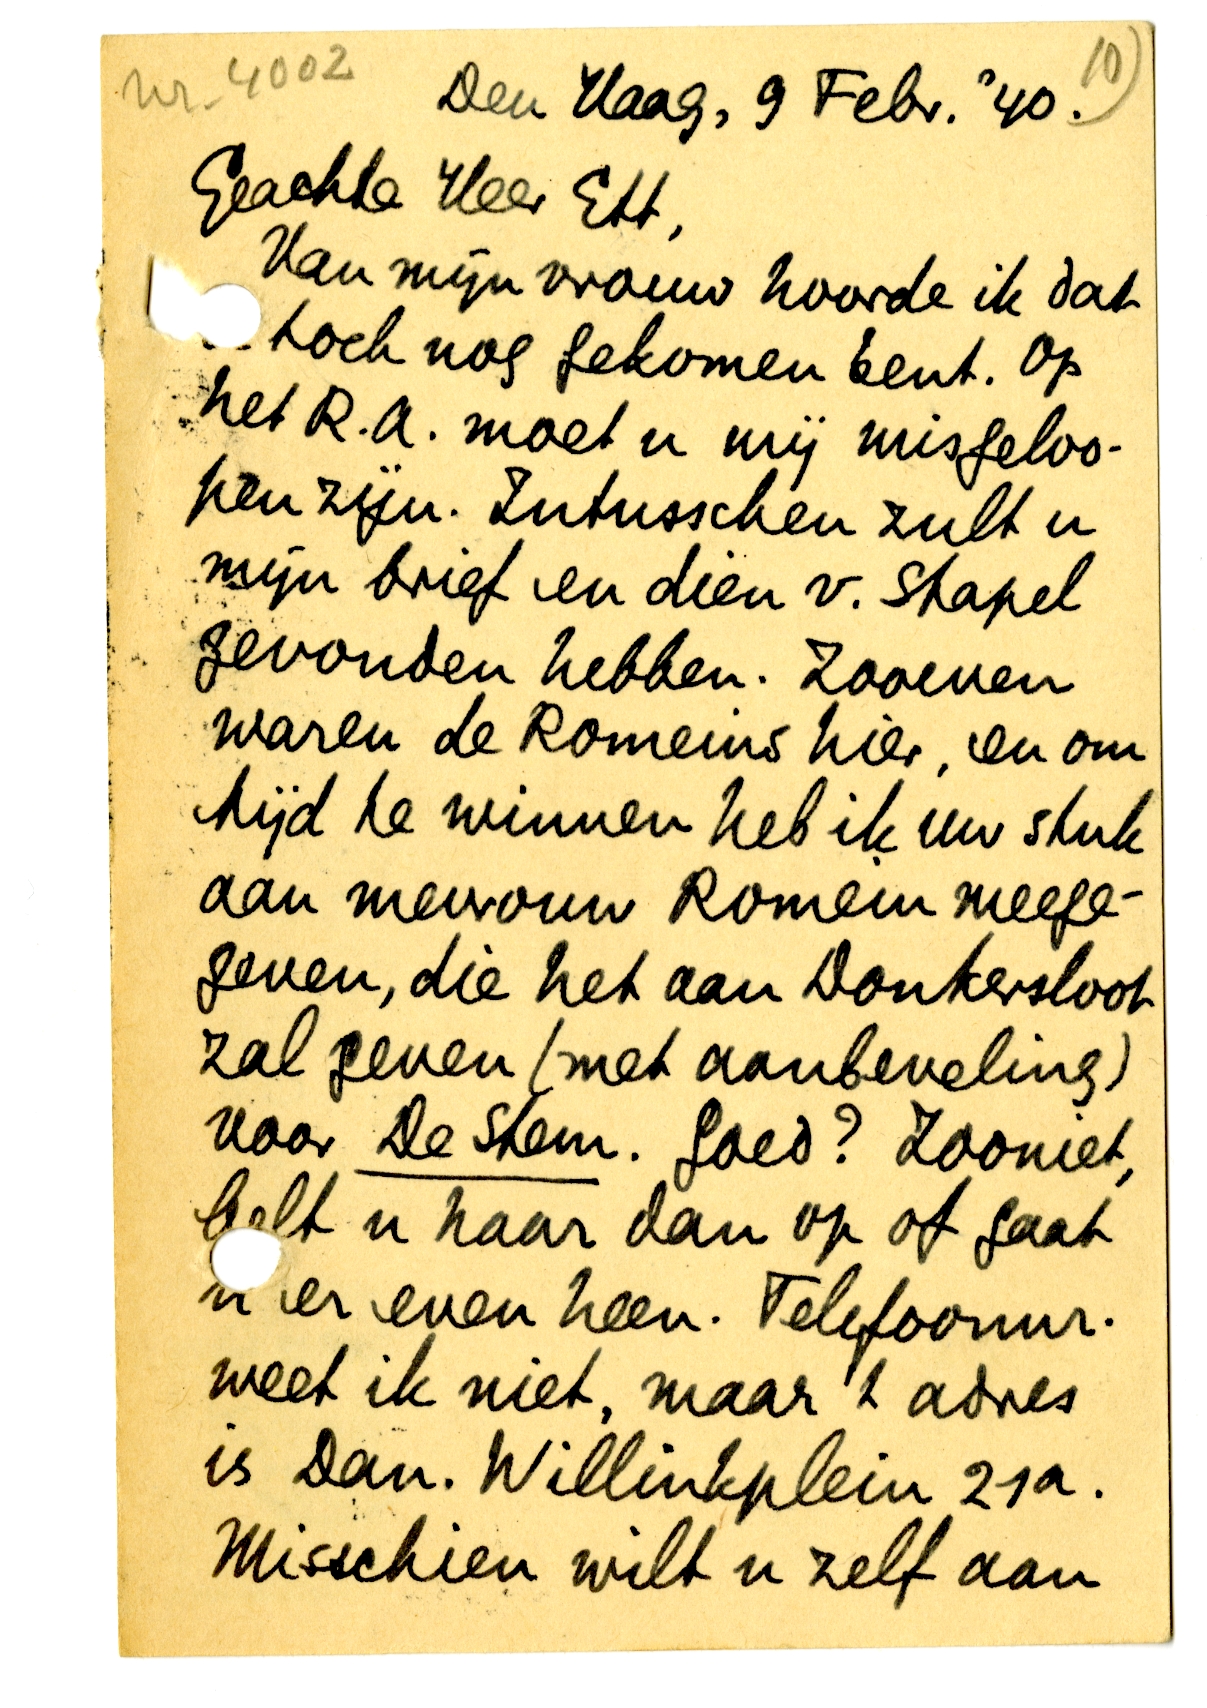 nr. 4002
10)
Den Haag, 9 Febr. '40.
Geachte Heer Ett,
Van mijn vrouw hoorde ik dat
toch nog gekomen bent. Op
het R.A. moet u mij misgeloo-
pen zijn. Intusschen zult u
mijn brief en dien v. Stapel
gevonden hebben. Zooeven
waren de Romeins hier, en om
tijd te winnen heb ik uw stuk
aan mevrouw Romein meege-
geven, die het aan Donkersloot
zal geven (met aanbeveling)
voor De Stem. Goed? Zooniet,
belt u haar dan op of gaat
u er even heen. Telefoonnr.
weet ik niet, maar 't adres
is Dan. Willinkplein 21a.
Misschien wilt u zelf aan